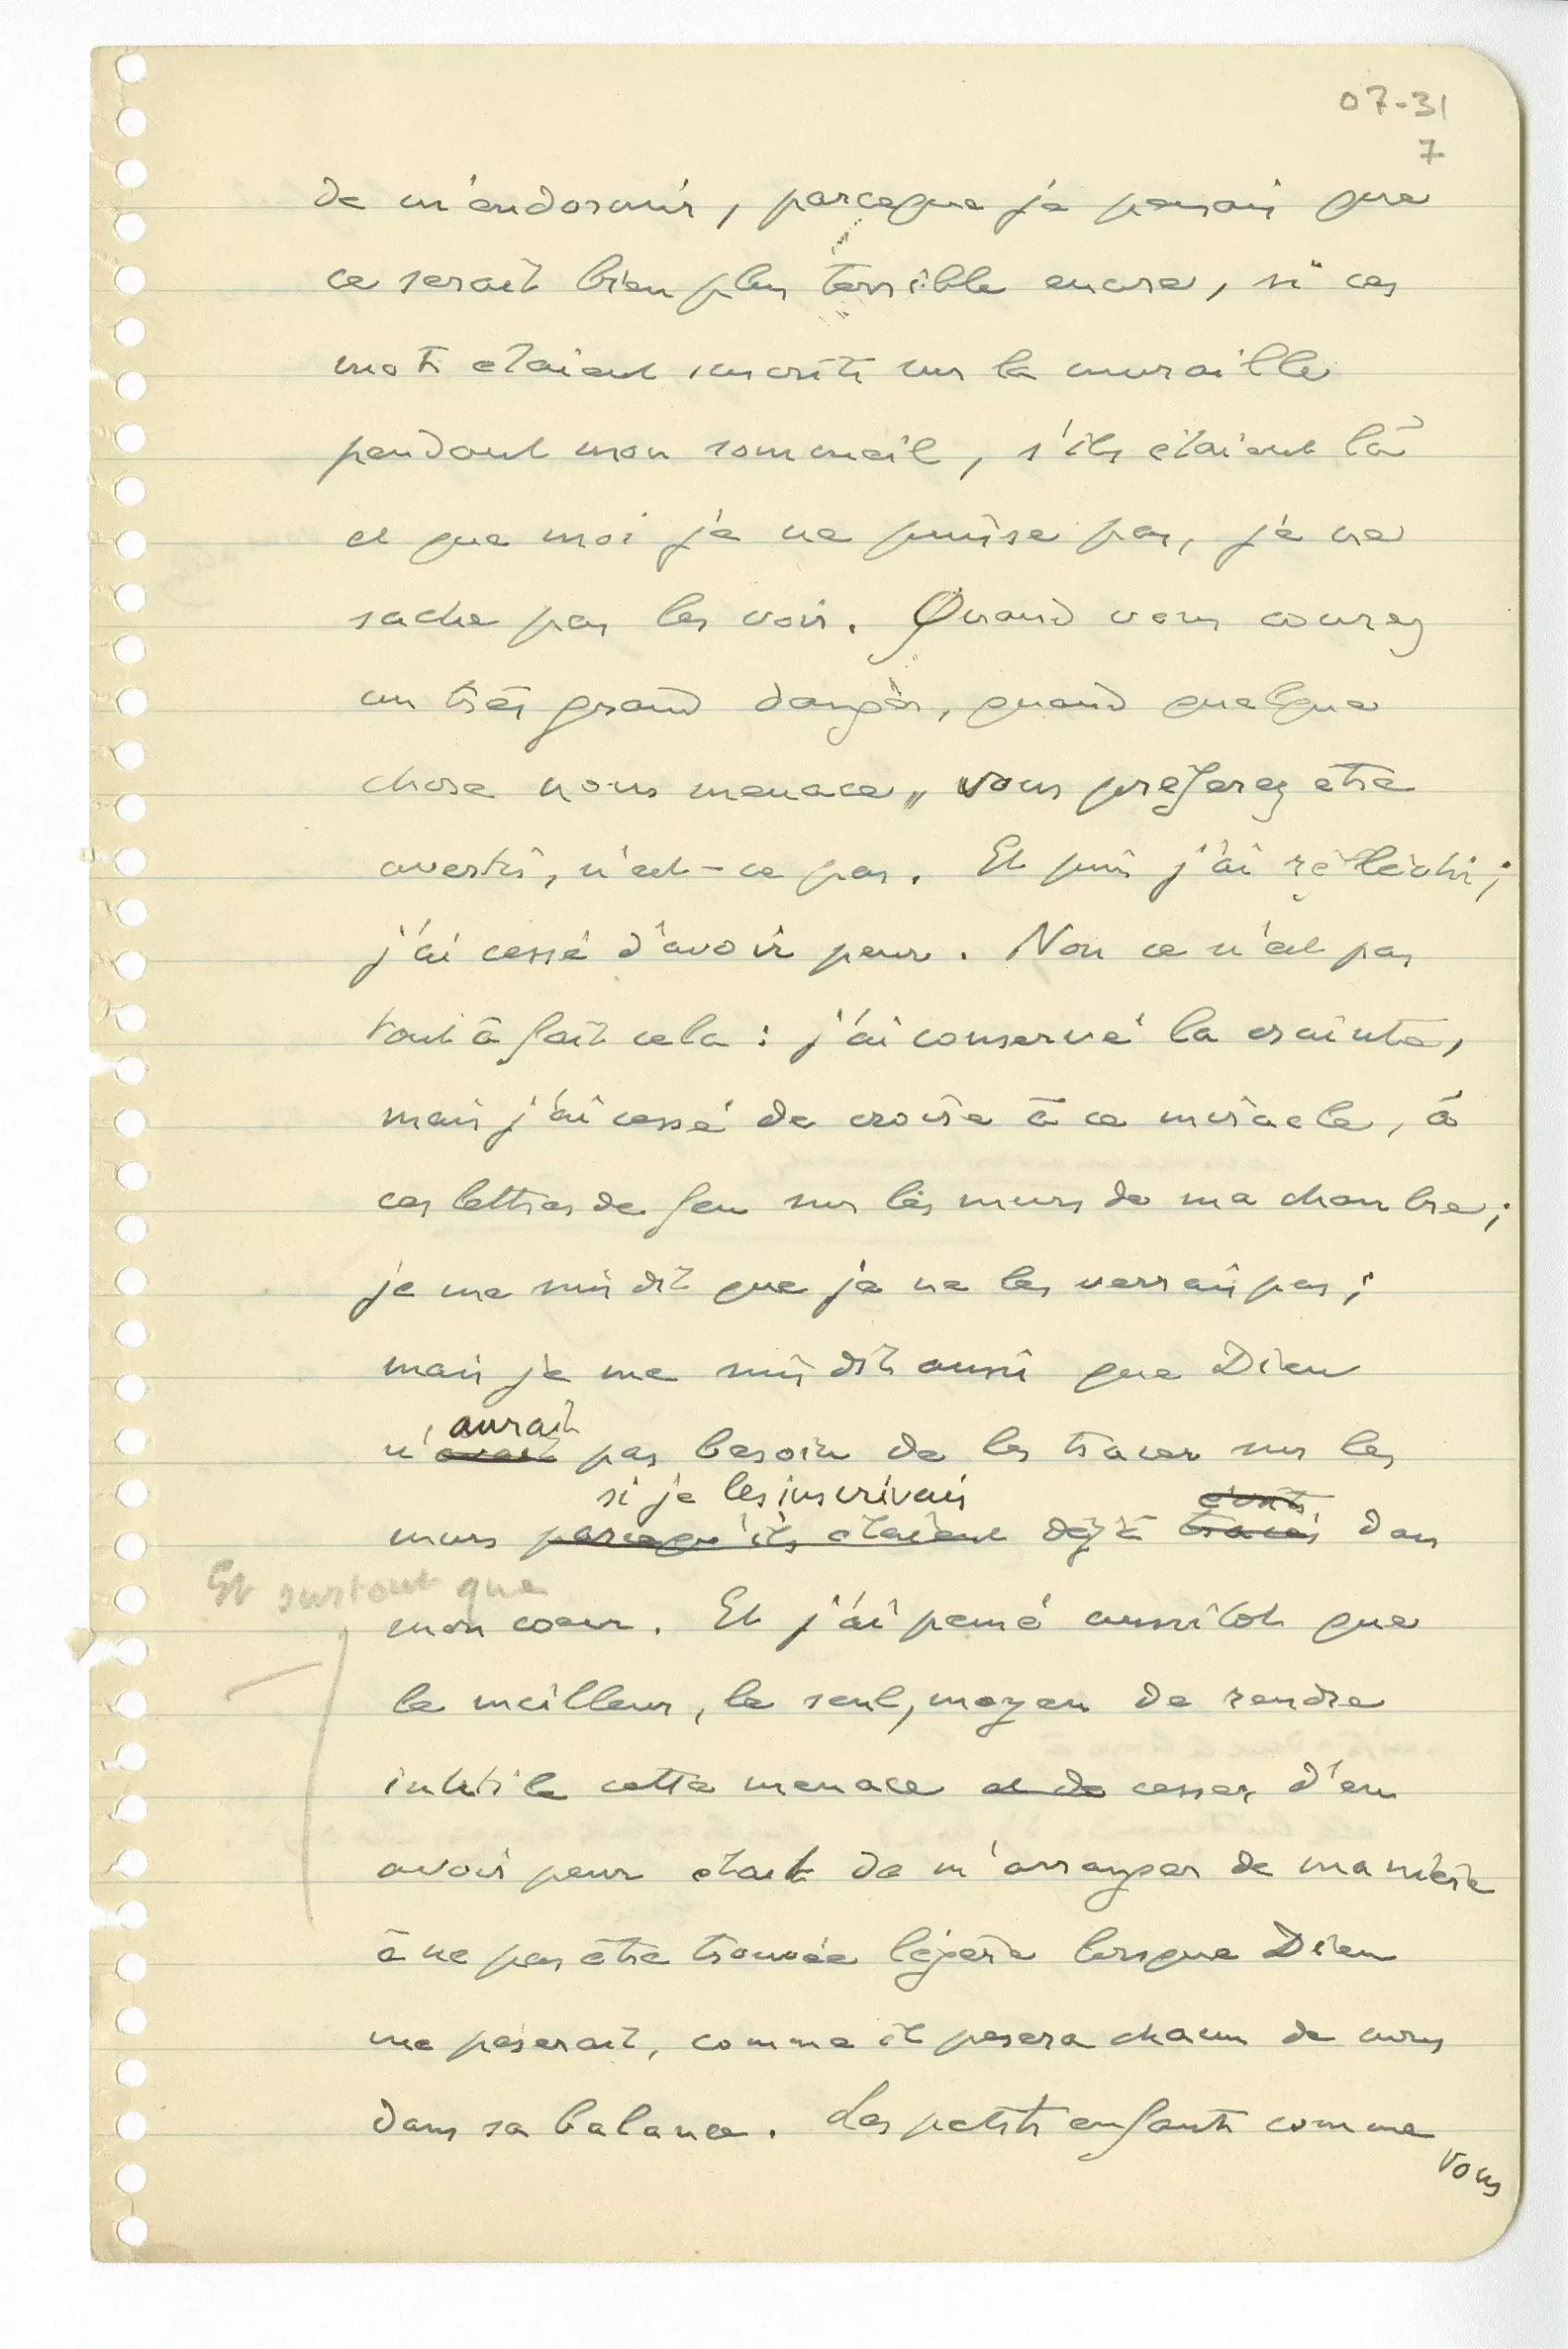 07-31
7
de m'endormir, parceque je pensais que
ce serait bien plus terrible encore, si ces
mots étaient inscrits sur la muraille
pendant mon sommeil, s'ils étaient là
et que moi je ne puisse pas, je ne
sache pas les voir. Quand vous courez
un très grand danger, quand quelque
chose vous menace, vous préférez être
averti, n'est-ce pas. Et puis j'ai réfléchi;
j'ai cessé d'avoir peur. Non ce n'est pas
tout à fait cela : j'ai conservé la crainte,
mais j'ai cessé de croire à ce miracle, à
ces lettres de feu sur les murs de ma chambre;
je me suis dit que je ne les verrais pas;
mais je me suis dit aussi que Dieu
aurait
n'avait pas besoin de les tracer sur les
si je les inscrivais écrits
murs parcequ'ils étaient déjà tracés dans
Et surtout que
mon coeur. Et j'ai pensé aussitôt que
le meilleur, le seul, moyen de rendre
inutile cette menace et de cesser d'en
avoir peur était de m'arranger de manière
à ne pas être trouvée légère lorsque Dieu
me peserait, comme il pesera chacun de nous
dans sa balance. Les petits enfants comme
vous